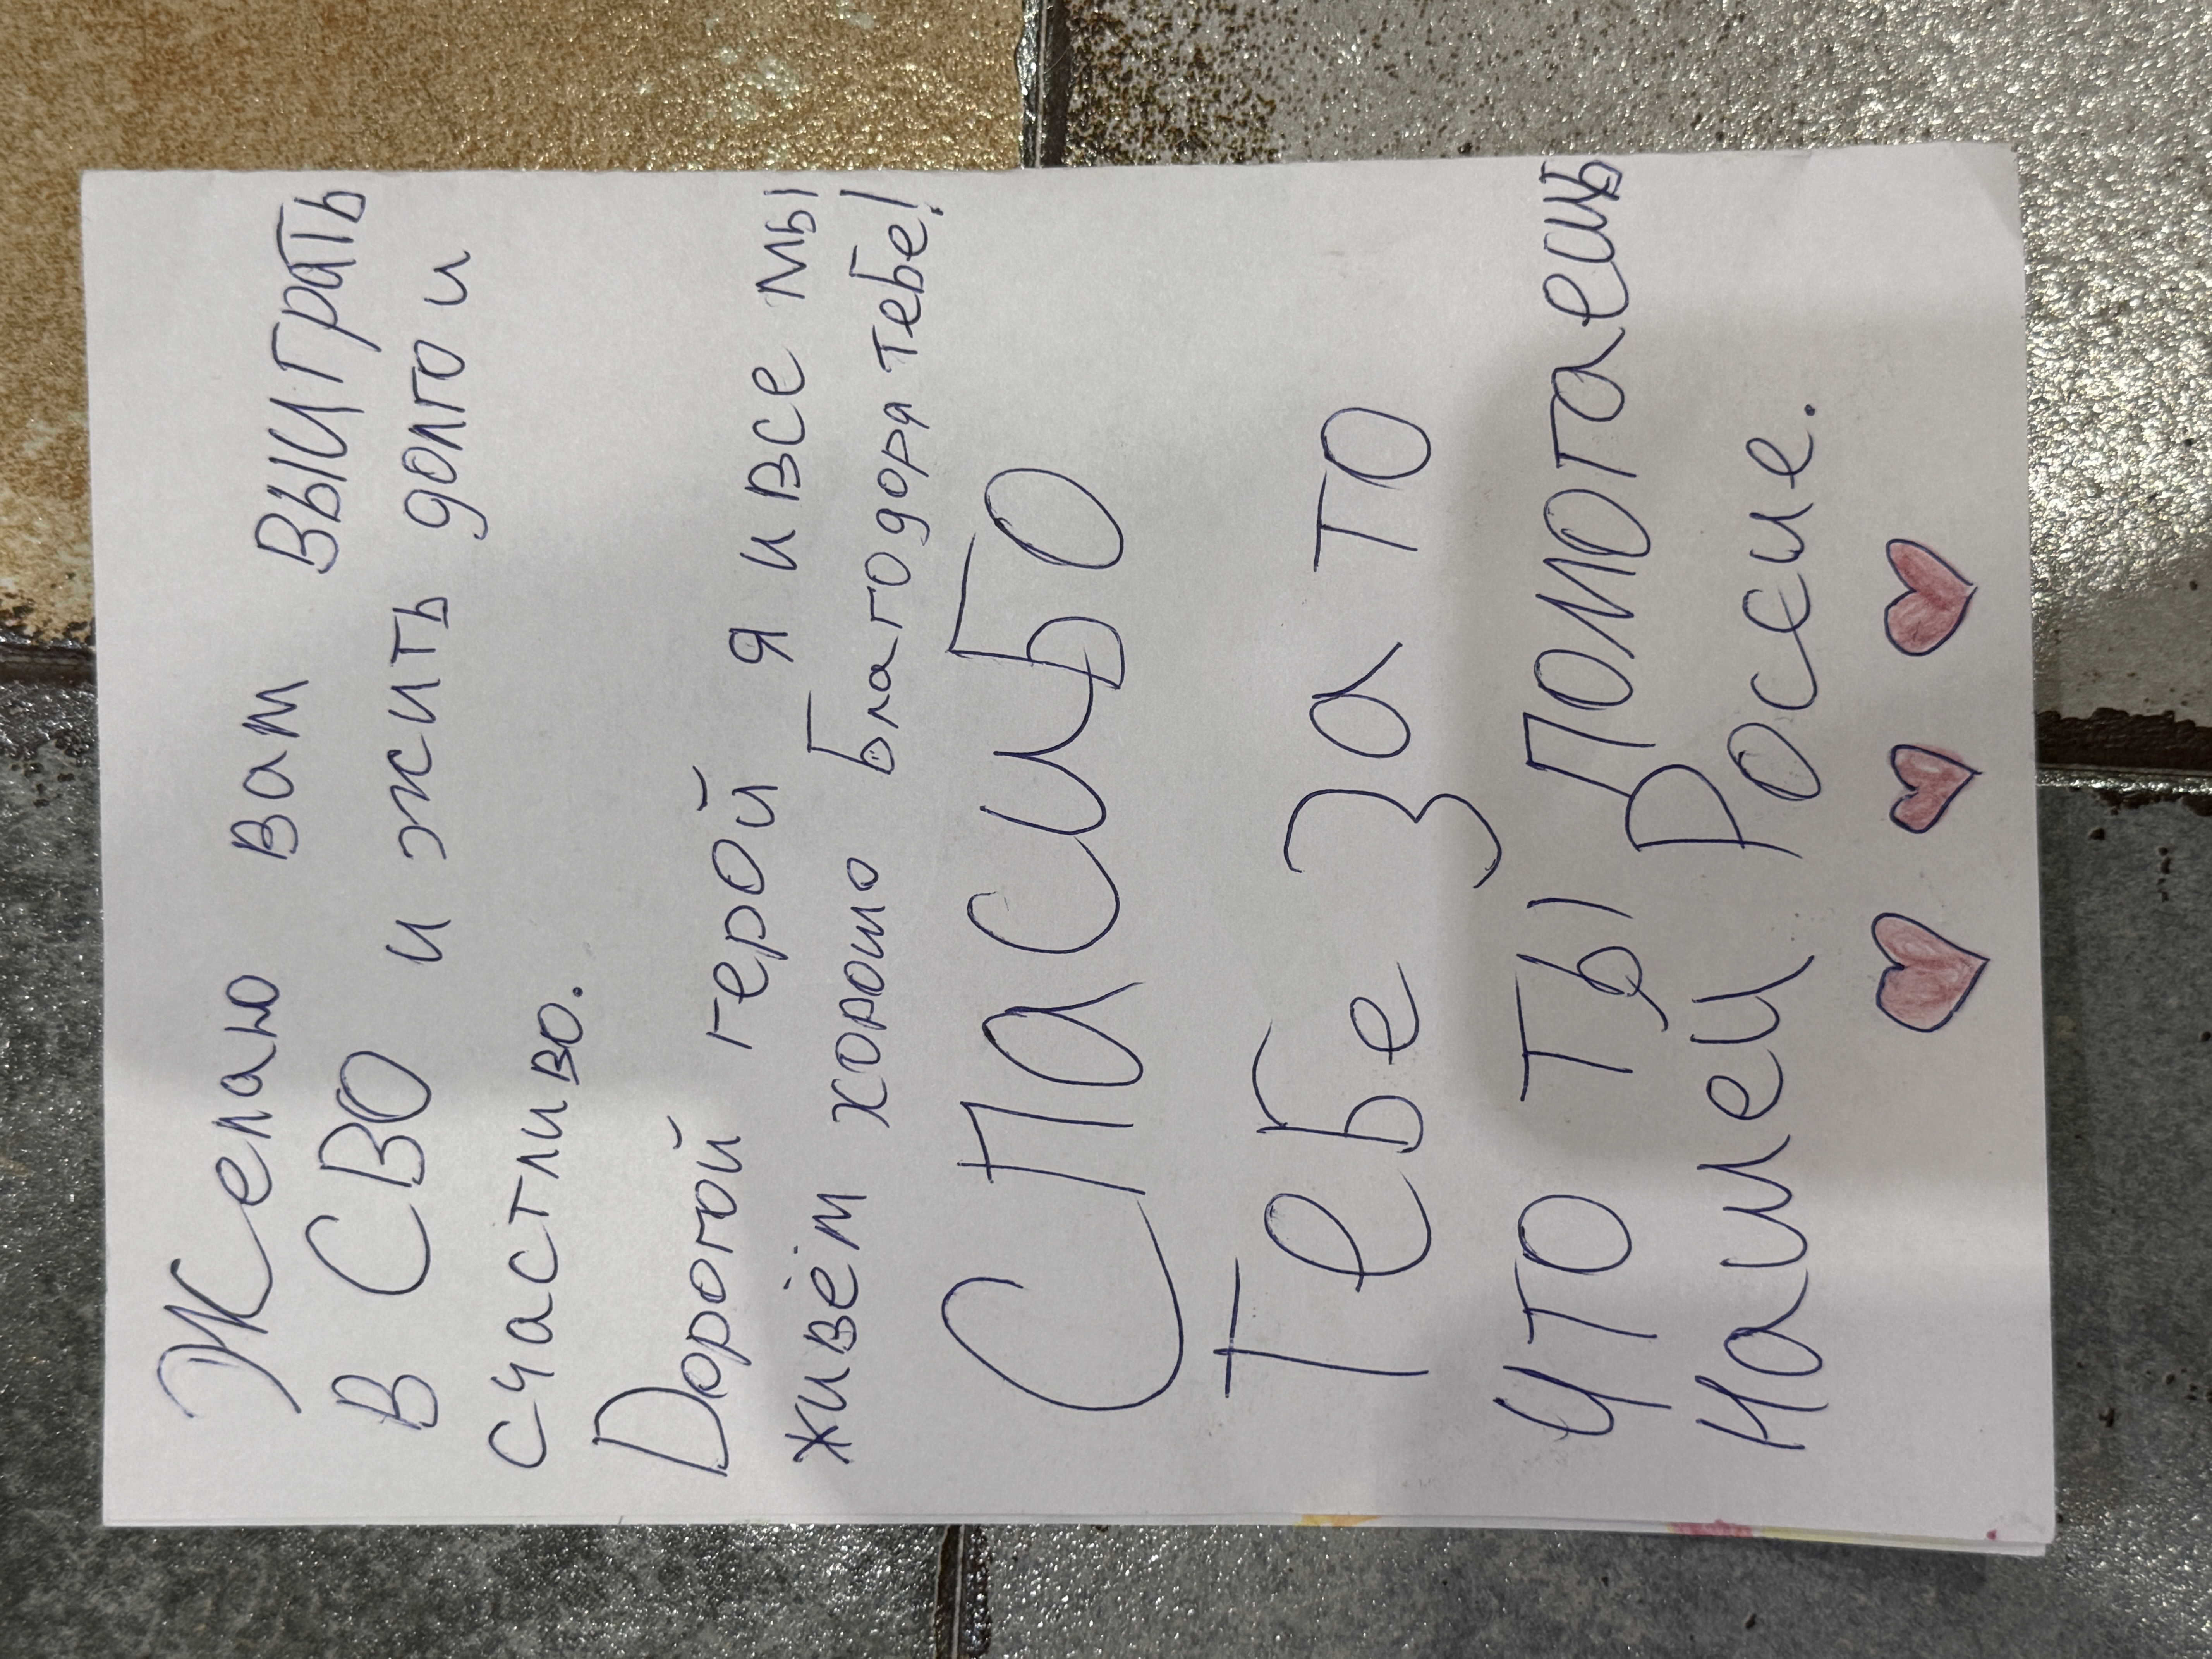 Желаю вам выиграть
в СВО и жить долго и
счастливо.
Дорогой герой я и все мы
живём хорошо благодоря тебе!
Спасибо
тебе за то
что ты помогаешь
нашей Росие.